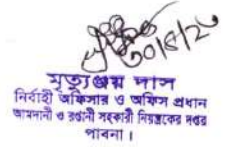 ৩০/৪/২০
মৃত্যুঞ্জয় দাস
নির্বাহী অফিসার ও অফিস প্রধান
আমদানী ও রপ্তানী সহকারী নিয়ন্ত্রকের দপ্তর
পাবনা।